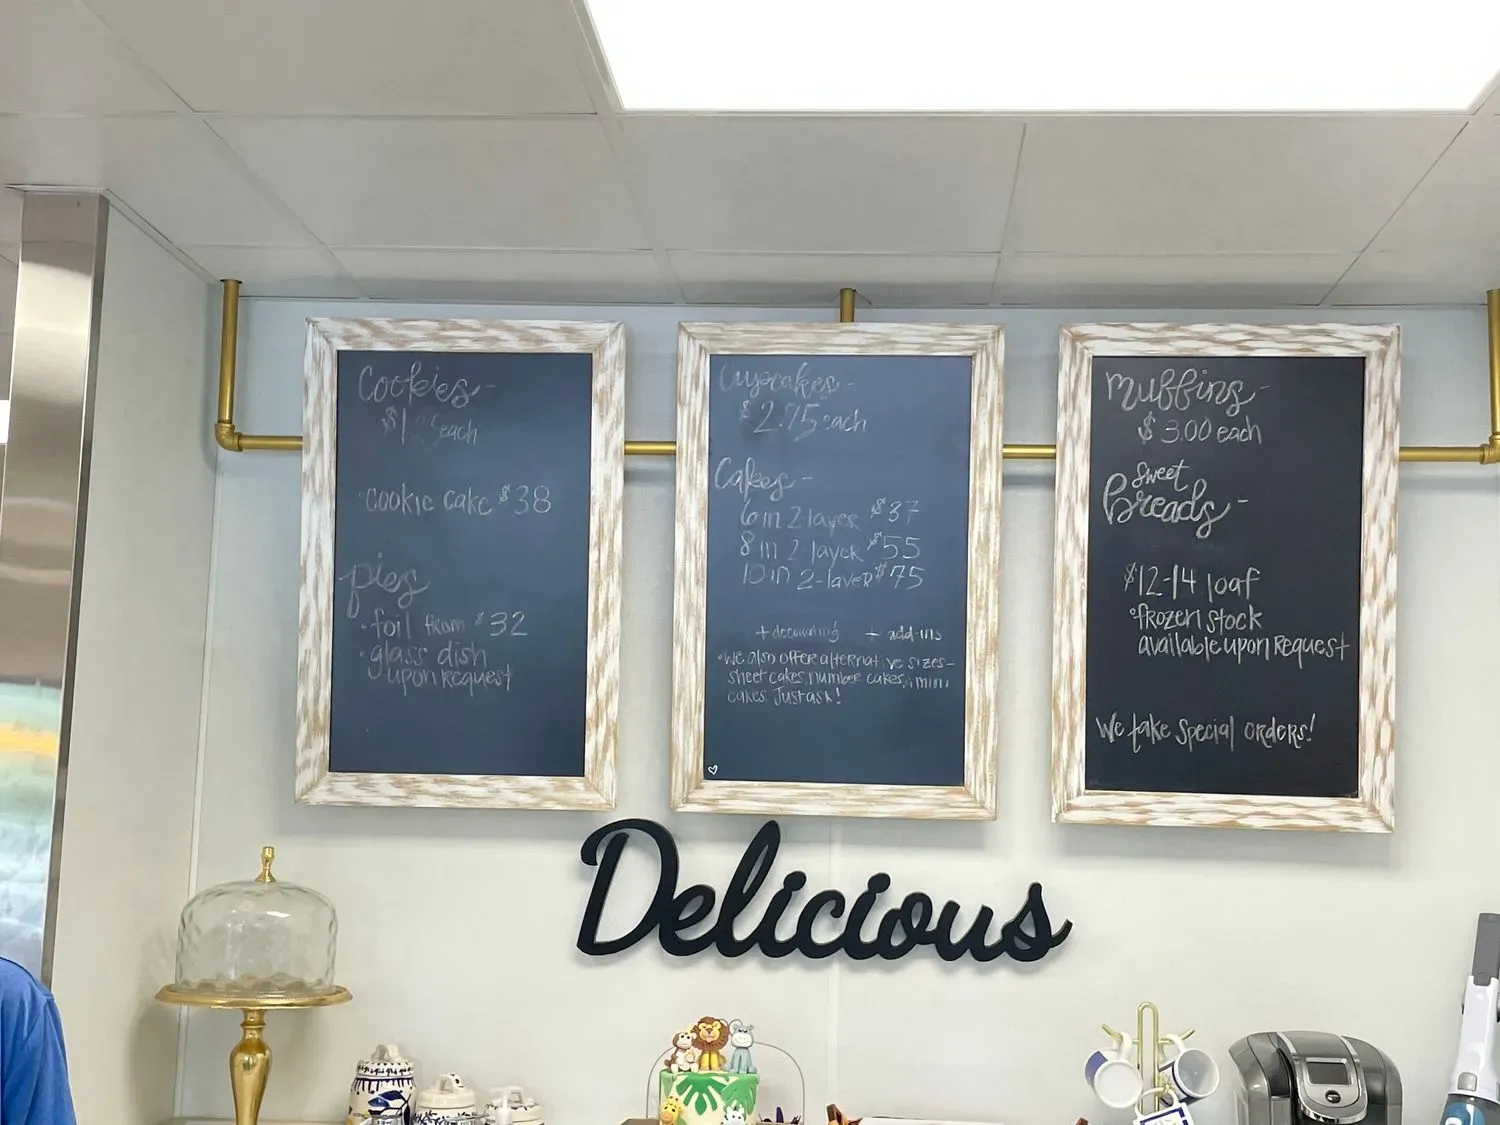 Cookies-
each
•cookie cake $38
pies
•foil from $32
•glass dish
upon Request
Cupcakes-
$2.75 each
Cakes-
6 in 2 layer $37
8 in 2 layer $55
10 in 2-layer $75
+ decorating + add-ins
•We also offer alternative sizes-
sheet cakes, number cakes, mini
cakes. Just ask!
Muffins-
$3.00 each
Sweet
Breads-
$12-14 loaf
•frozen stock
available upon Request
We take special orders!
Delicious